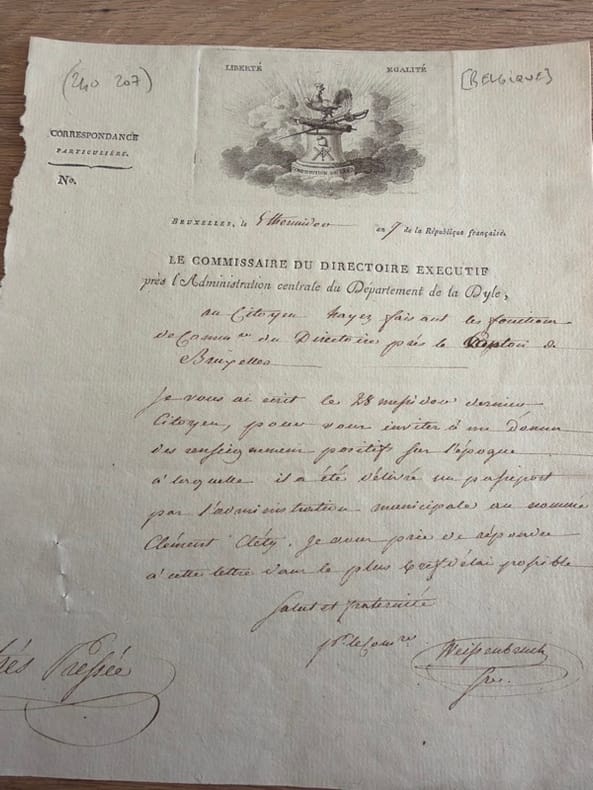 (240 207)
[BELGIQUE]
LIBERTÉ
EGALITÉ
CORRESPONDANCE
PARTICULIÈRE.
No.
BRUXELLES, le 5 thermidor an 7 de la République française.
LE COMMISSAIRE DU DIRECTOIRE EXECUTIF
près l'Administration centrale du Département de la Dyle,
au Citoyen hayez faisant les fonctions
de Comm.re du Directoire près le Canton de
Bruxelles
Je vous ai écrit le 28 messidor dernier
Citoyen, pour vous inviter à me donner
des renseignemens positifs sur l'époque
à laquelle il a été délivré un passeport
par l'administration municipale au nommé
Clément Cléty. Je vous prie de répondre
à cette lettre dans le plus bref délai possible
Salut et fraternité
pr. le Com.re
Weissenbruch
Très Pressée